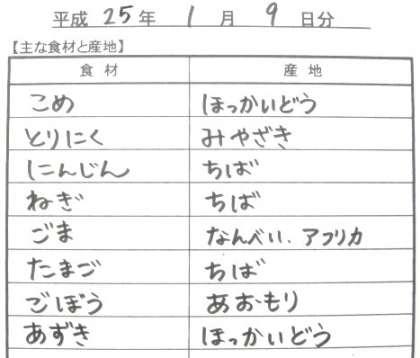 平成 25 年 1 月 9 日分
【主な食材と産地】
食材 産地
こめ ほっかいどう
とりにく みやざき
にんじん ちば
ねぎ ちば
ごま なんべい、アフリカ
たまご ちば
ごぼう あおもり
あずき ほっかいどう